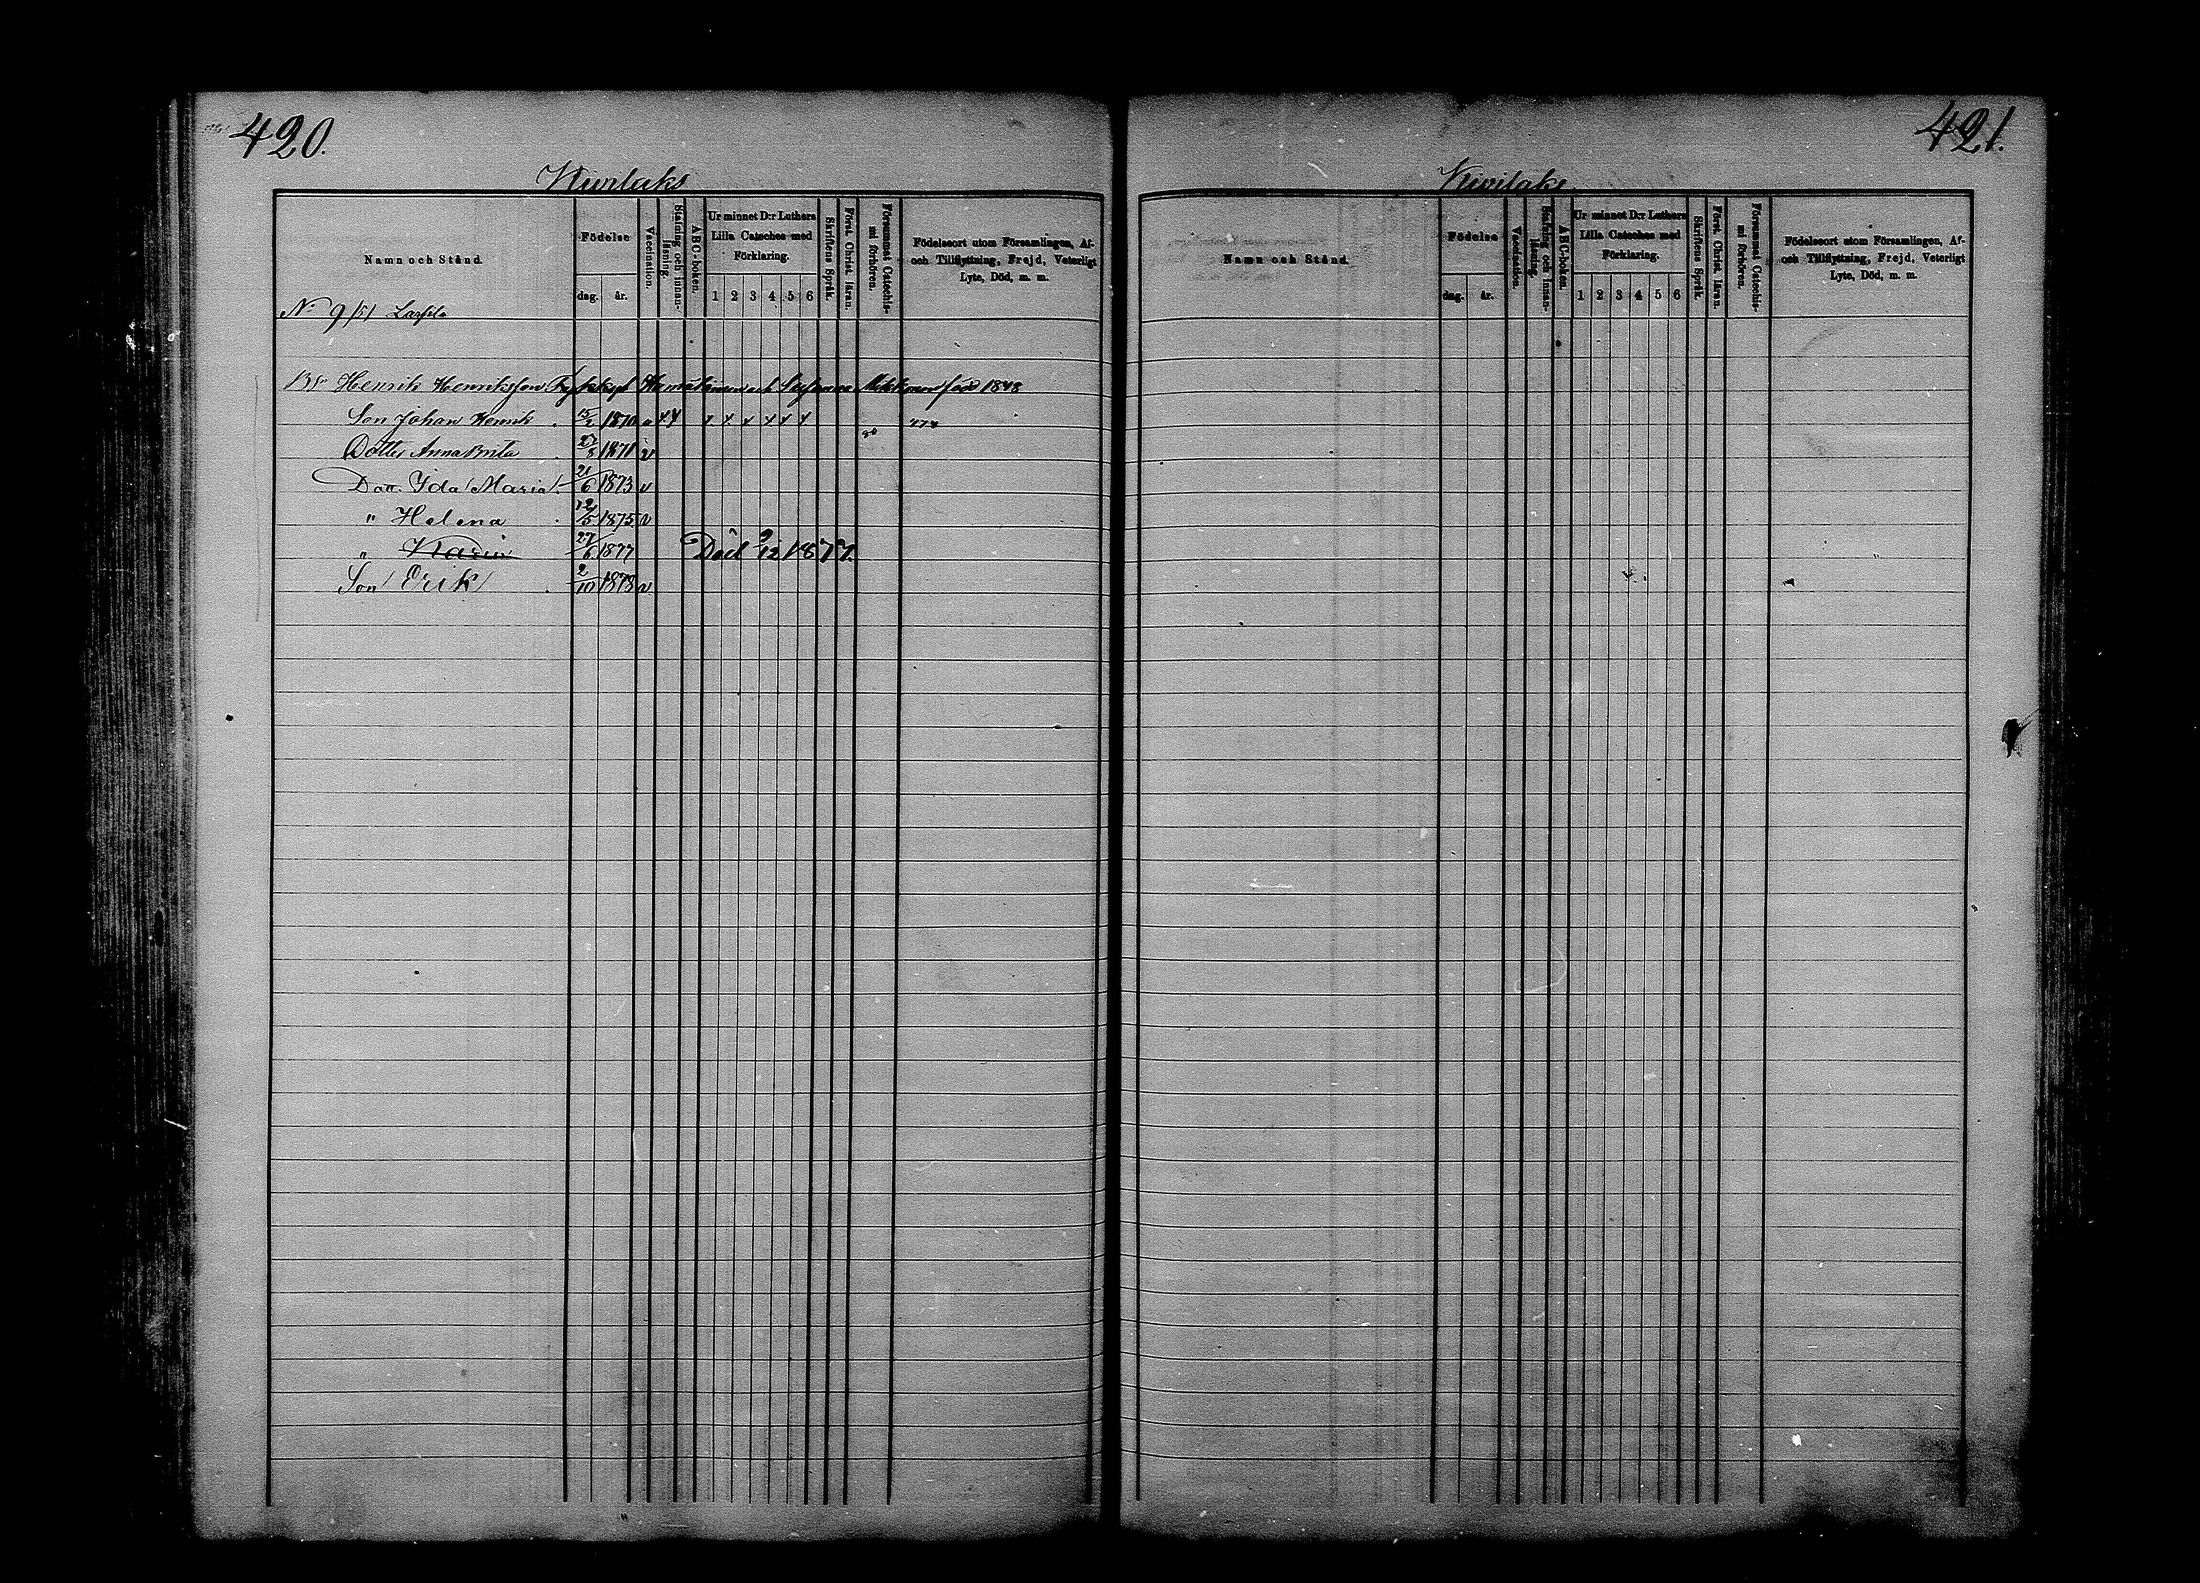 420.
Kivilaks
Namn och Stånd.
Födelse
dag.
år.
Vaccination.
Stafning och innan-
läsning.
ABC-boken.
Ur minnet D:r Luthers
Lilla Cateches med
Förklaring.
1 2 3 4 5 6
Skriftens Språk.
Först. Christ. läran.
Försummat Catechis-
mi förhören.
Födelseort utom Församlingen, Af-
och Tillflyttning, Frejd, Veterligt
Lyte, Död, m. m.
No 9
Henrik Henriksson och född 1848
Son Johan Henrik 15 1870
Dotter Anna Brita 27 1871 v
Dott. Ida Maria 21/6 1873 v
" Helena 12/5 1875 v
" Maria 27/6 1877 Död 9/12 1877.
Son Erik 2/10 1878 v
421.
Kivilaks
Namn och Stånd.
Födelse
dag.
år.
Vaccination.
Stafning och innan-
läsning.
ABC-boken.
Ur minnet D:r Luthers
Lilla Cateches med
Förklaring.
1 2 3 4 5 6
Skriftens Språk.
Först. Christ. läran.
Försummat Catechis-
mi förhören.
Födelseort utom Församlingen, Af-
och Tillflyttning, Frejd, Veterligt
Lyte, Död, m. m.